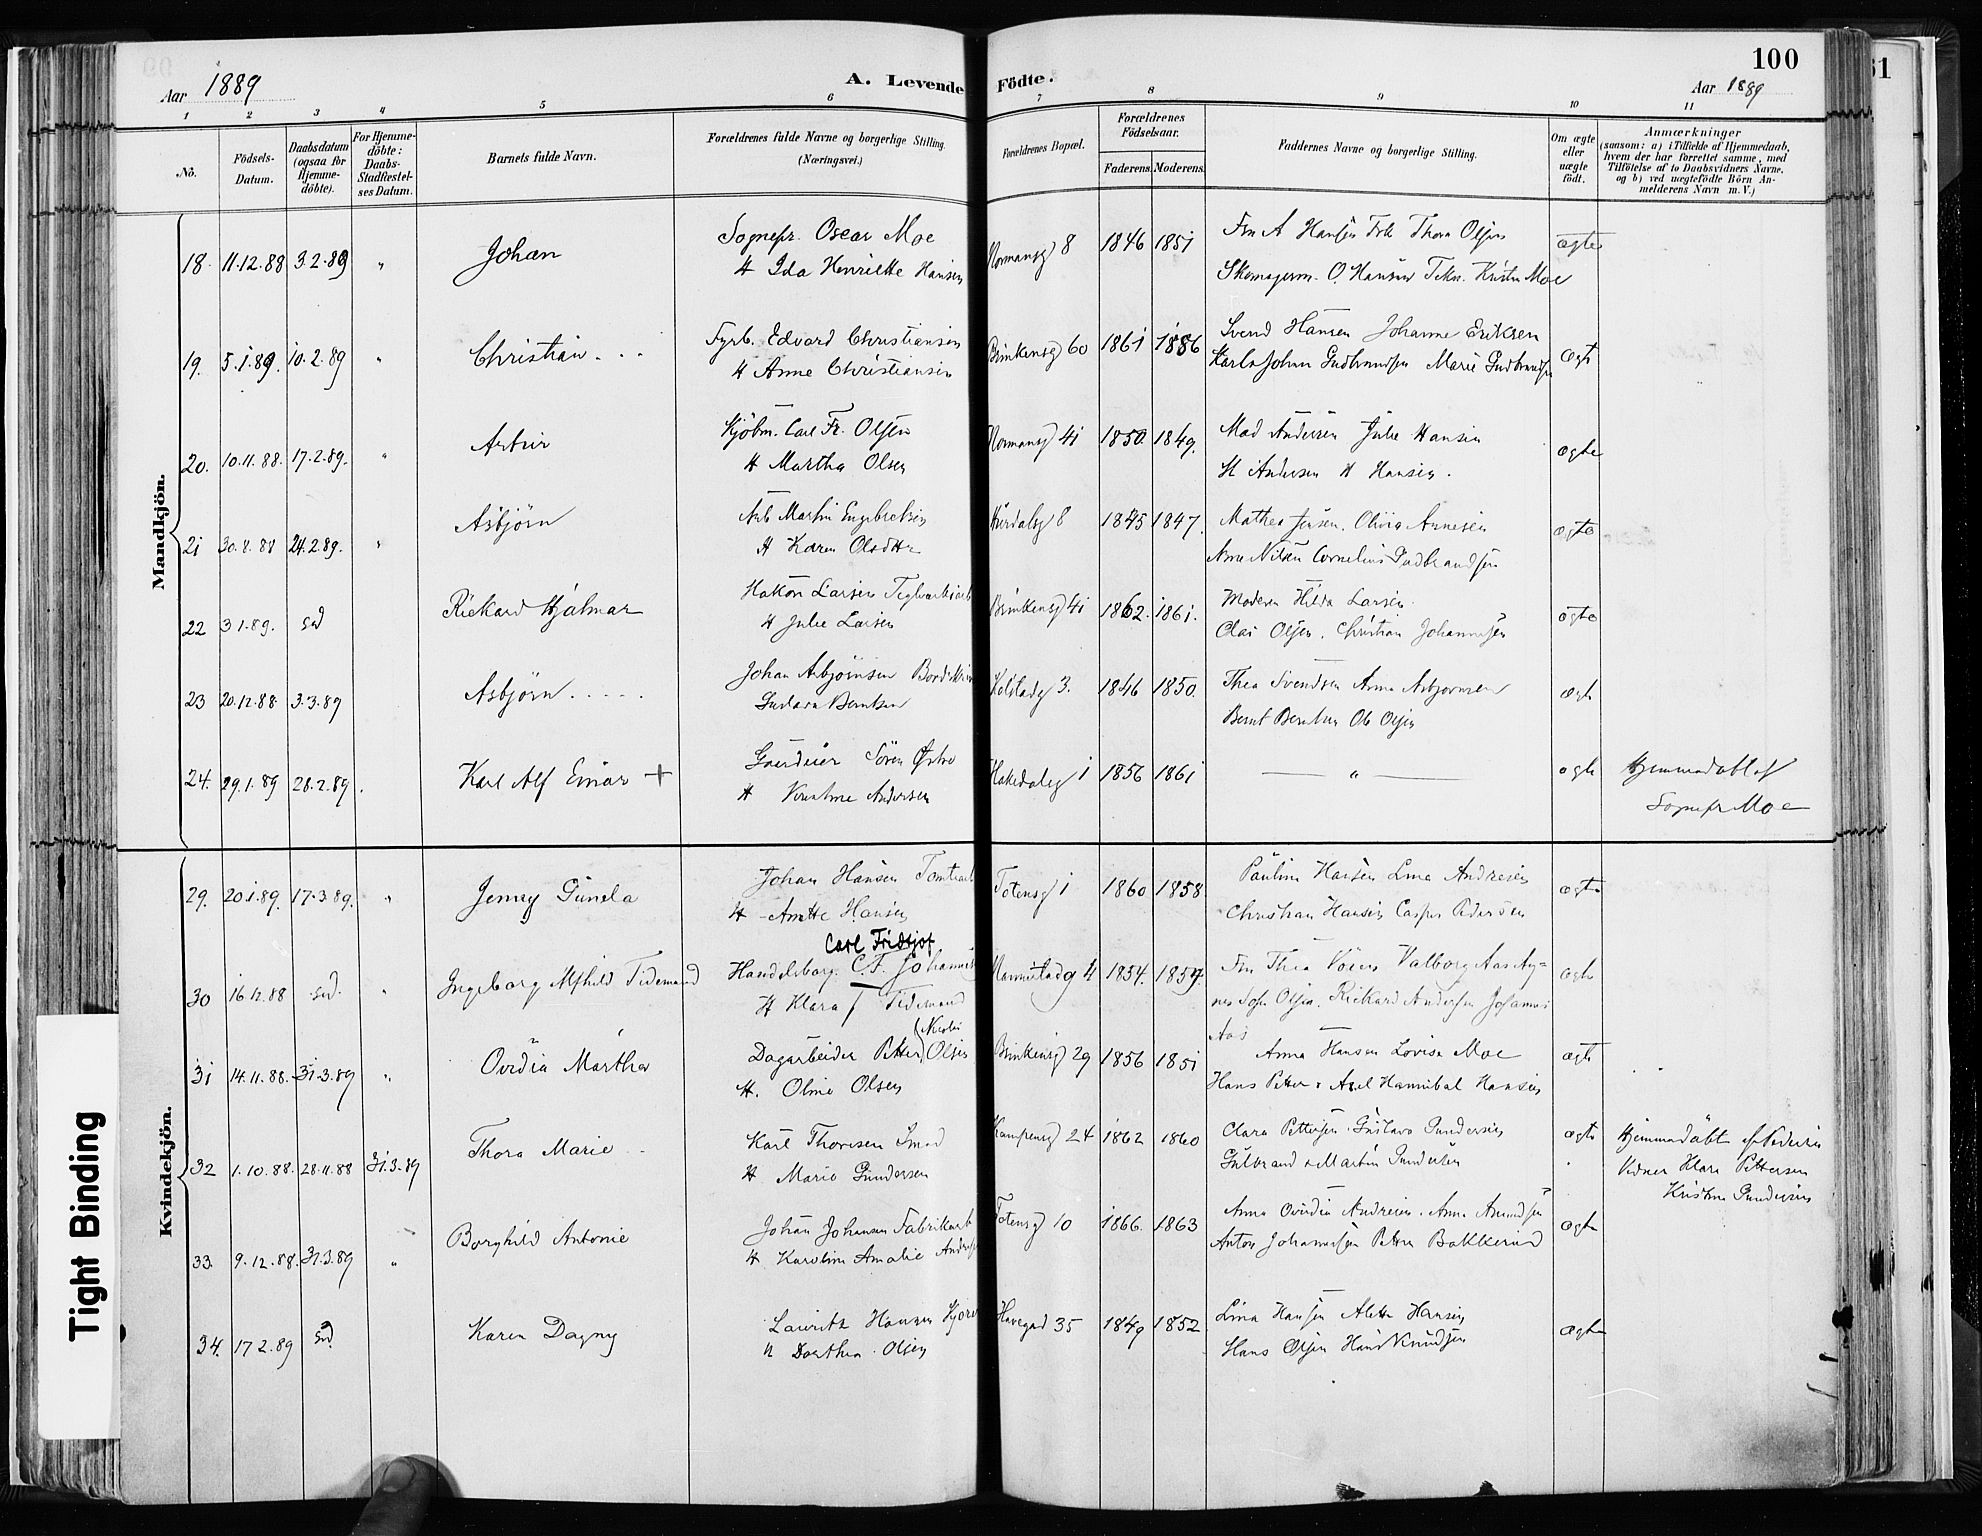 Aar 1889
A. Levende Födte.
100
Aar 1889
61
1 2 3 4 5 6 7 8 9 10 11
No.
Födsels-
Datum.
Daabsdatum
(ogsaa for
Hjemme-
döbte).
For Hjemme-
döbte:
Daabs-
Stadfæstel-
ses Datum.
Barnets fulde Navn.
Forældrenes fulde Navne og borgerlige Stilling.
(Næringsvei.)
Forældrenes Bopæl.
Forældrenes
Födselsaar.
Faderens. Moderens.
Faddernes Navne og borgerlige Stilling.
Om ægte
eller
uægte
födt.
Anmærkninger
(saasom: a) i Tilfælde af Hjemmedaab,
hvem der har forrettet samme, med
Tilföielse af to Daabsvidners Navne,
og b) ved uægtefödte Börn An-
melderens Navn m. V.)
Mandkjön.
18. 11.12.88 3.2.89 „ Johan
Sognepr. Oscar Moe
H Ida Henriette Hansen
Normansg 8 1846 1851
Fru A Hansen Frk Thora Olsen
Skomagerm. O. Hansen Tekn. Kristen Moe
ægte
19. 5.1.89. 10.2.89 „ Christian
Fyrb. Edvard Christiansen
H Anne Christiansen
Brinkensg 60 1861 1886
Svend Hansen Johanne Eriksen
Karl Johan Gudbrandsen Marie Gudbrandsen
Ægte
20. 10.11.88. 17.2.89. „ Artur
Kjöbm. Carl Fr. Olsen
H Martha Olsen
Normansg 41 1850 1849.
Mad Andersen Julie Hansen
H Andersen H Hansen.
ægte
21 30.8.88 24.2.89. „ Asbjörn
Arb Martin Engebretsen
H Karen Olsdtr
Hurdalsg 8 1845 1847.
Mathea Jensen. Olivia Arnesen
Arne Nilsen Cornelius Gudbrandsen
ægte
22 3 1.89. sed Rickard Hjalmar
Hakon Larsen Teglverksarb
H Julie Larsen
Brinkensg 41 1862. 1861.
Moderen Hilda Larsen.
Olai Olsen. Christian Johannesen
ægte
23 20.12.88. 3.3.89 Asbjörn
Johan Asbjörnsen
Gustava Berntsen
Kolstadg 3. 1846 1850.
Thea Svendsen Anna Asbjörnsen
Bernt Berntsen Ole Olsen
ægte
24. 29.1.89 28.2.89 . Karl Alf Einar +
Sören Østbo
H Andersen
Hakedalsg 1 1856 1861
„
ægte
Hjemmedöbt af
Sognepr Moe
Kvindekjön.
29. 20.1.89. 17.3.89. „ Jenny Gunela
Johan Hansen Tomtearb
H Anette Hansen
Totensg 1 1860 1858
Pauline Hansen Lina Andresen
Christian Hansen Casper Pedersen
ægte
30 16 12.88 sed. „ Ingeborg Alfhild Tidemand
Carl Fridtjof
Handelsborg. C.F. Johannes
H Klara / Tidemand
4 1854. 1859.
Fru Thea Valborg Aas Ag=
nes Sofie Olsen. Rickard Andersen Johannes
Aas
ægte
31 14.11.88. 31.3.89 „ Ovidia Martha
Dagarbeider Petter Olsen
H. Oline Olsen
Brinkensg 29 1856 1851
Anna Hansen Lovise Moe
Hans Petter & Axel Hannibal Hansen
ægte
32 1.10.88. 28.11.88 31.3.89 Thora Marie
Karl Thoresen Smed
H Marie Gundersen
Kampensg 24 1862 1860
Clara Pettersen. Gustava Gundersen
Gulbrand & Martin Gundersen
ægte
Hjemmedöbt af
Vidner Klara Pettersen
Kristine Gundersen
33. 9.12.88. 31.3.89 „ Borghild Antonie
Johan Johansen Fabrikarb
H Karoline Amalie
Totensg 10 1866. 1863
Anna Ovidia Andresen. Anna Amundsen
Anton Johannesen Petter Bakkerud
ægte
34. 17 2.89 sed. Karen Dagny
Lauritz Hansen
H Dorthea Olsen
Havegad 35 1849 1852
Lina Hansen Aletta Hansen
Hans Olsen Hans Knudsen
Ægte
Tight Binding